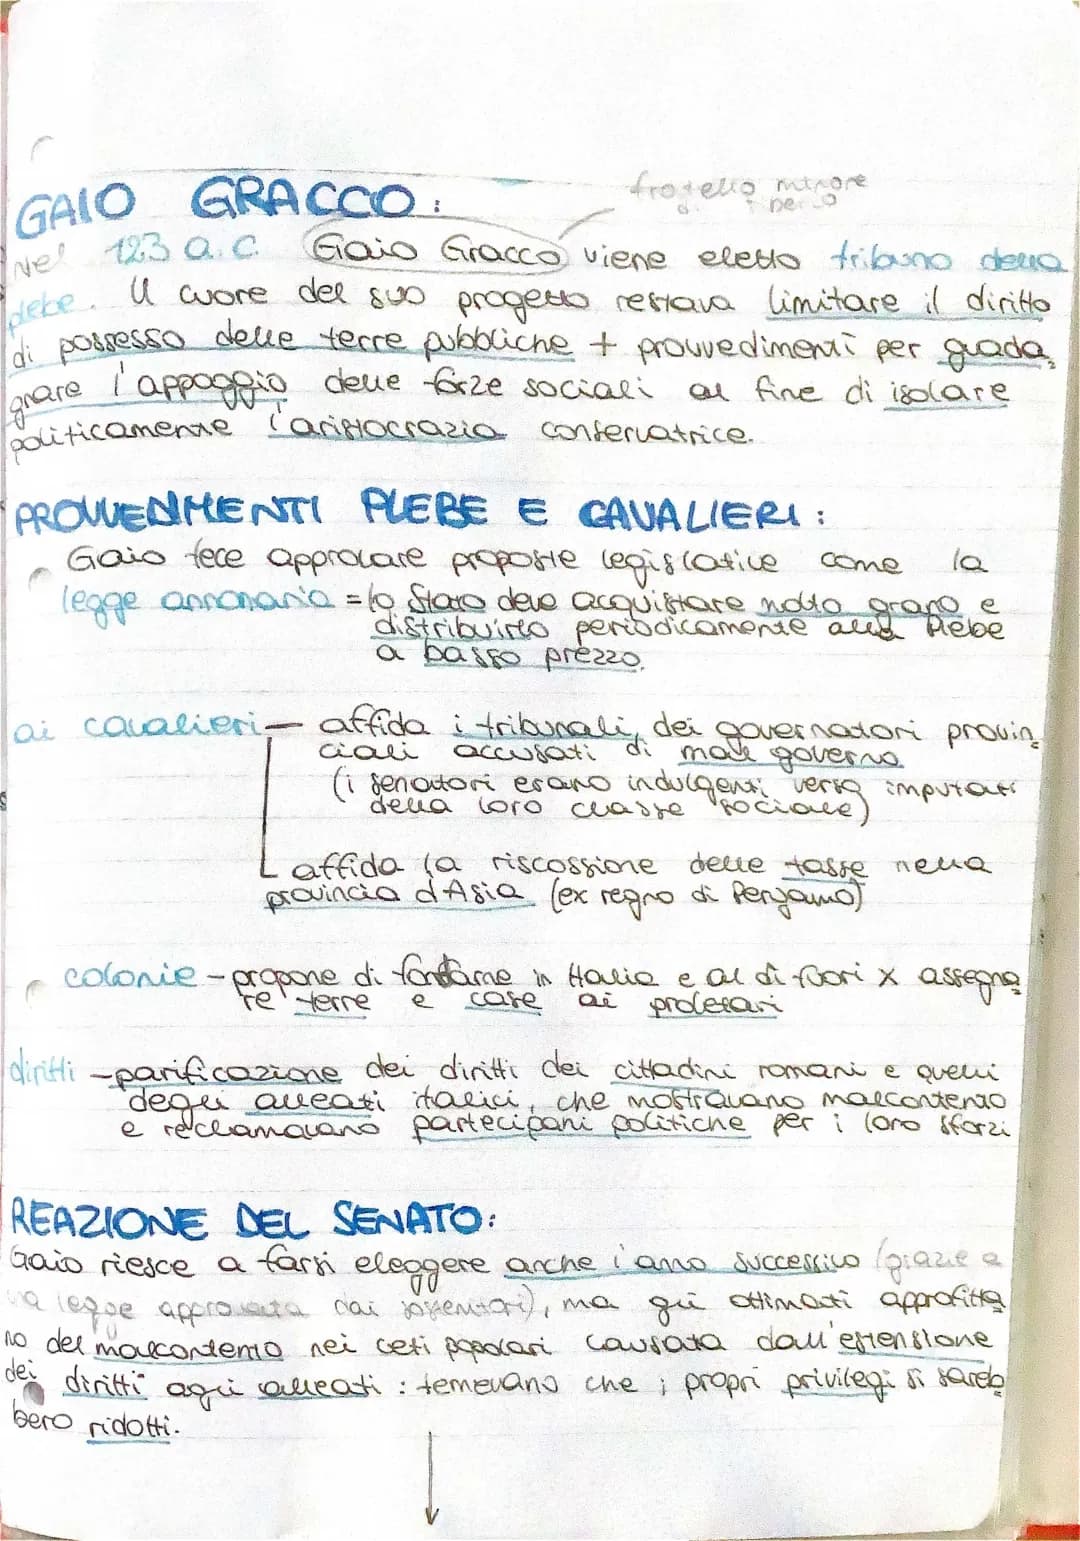 GAIO GRACCO:
fratello minore
Nel 123 a.C. Gaio Gracco viene eletto tribuno della
plebe. Il cuore del suo progetto restava limitare il diritto
di possesso delle terre pubbliche + provvedimenti per guada
gnare l'appoggio delle forze sociali al fine di isolare
politicamente l'aristocrazia conservatrice.
PROVVEDIMENTI PLEBE E CAVALIERI:
Gaio fece approvare proposte legislative come la
legge annonaria = lo Stato deve acquistare molto grano e
distribuirlo periodicamente alla plebe
a basso prezzo.
ai cavalieri - affida i tribunali, dei governatori provin
ciali accusati di mal governo
(i senatori erano indulgenti verso imputati
della loro classe sociale)
affida la riscossione delle tasse nella
provincia d'Asia (ex regno di Pergamo)
colonie - propone di fondarne in Italia e al di fuori x assegna
re terre e case ai proletari
diritti - parificazione dei diritti dei cittadini romani e quelli
degli alleati italici, che mostravano malcontento
e reclamavano partecipani politiche per i loro sforzi
REAZIONE DEL SENATO:
Gaio riesce a farsi eleggere anche l'anno successivo (grazie a
legge approvata dai), ma gli ottimati approfitta
no del malcontento nei ceti popolari causata dall'estensione
dei diritti agli alleati: temevano che i propri privilegi si sareb
bero ridotti.